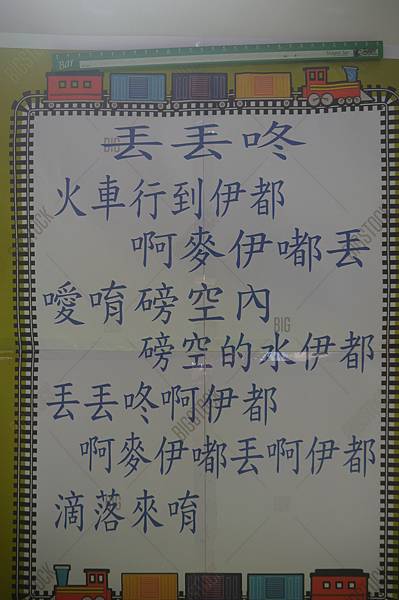 丟丟咚
火車行到伊都
啊麥伊嘟丟
噯唷磅空內
磅空的水伊都
丟丟咚啊伊都
啊麥伊嘟丟啊伊都
滴落來唷
BIGSTOCK